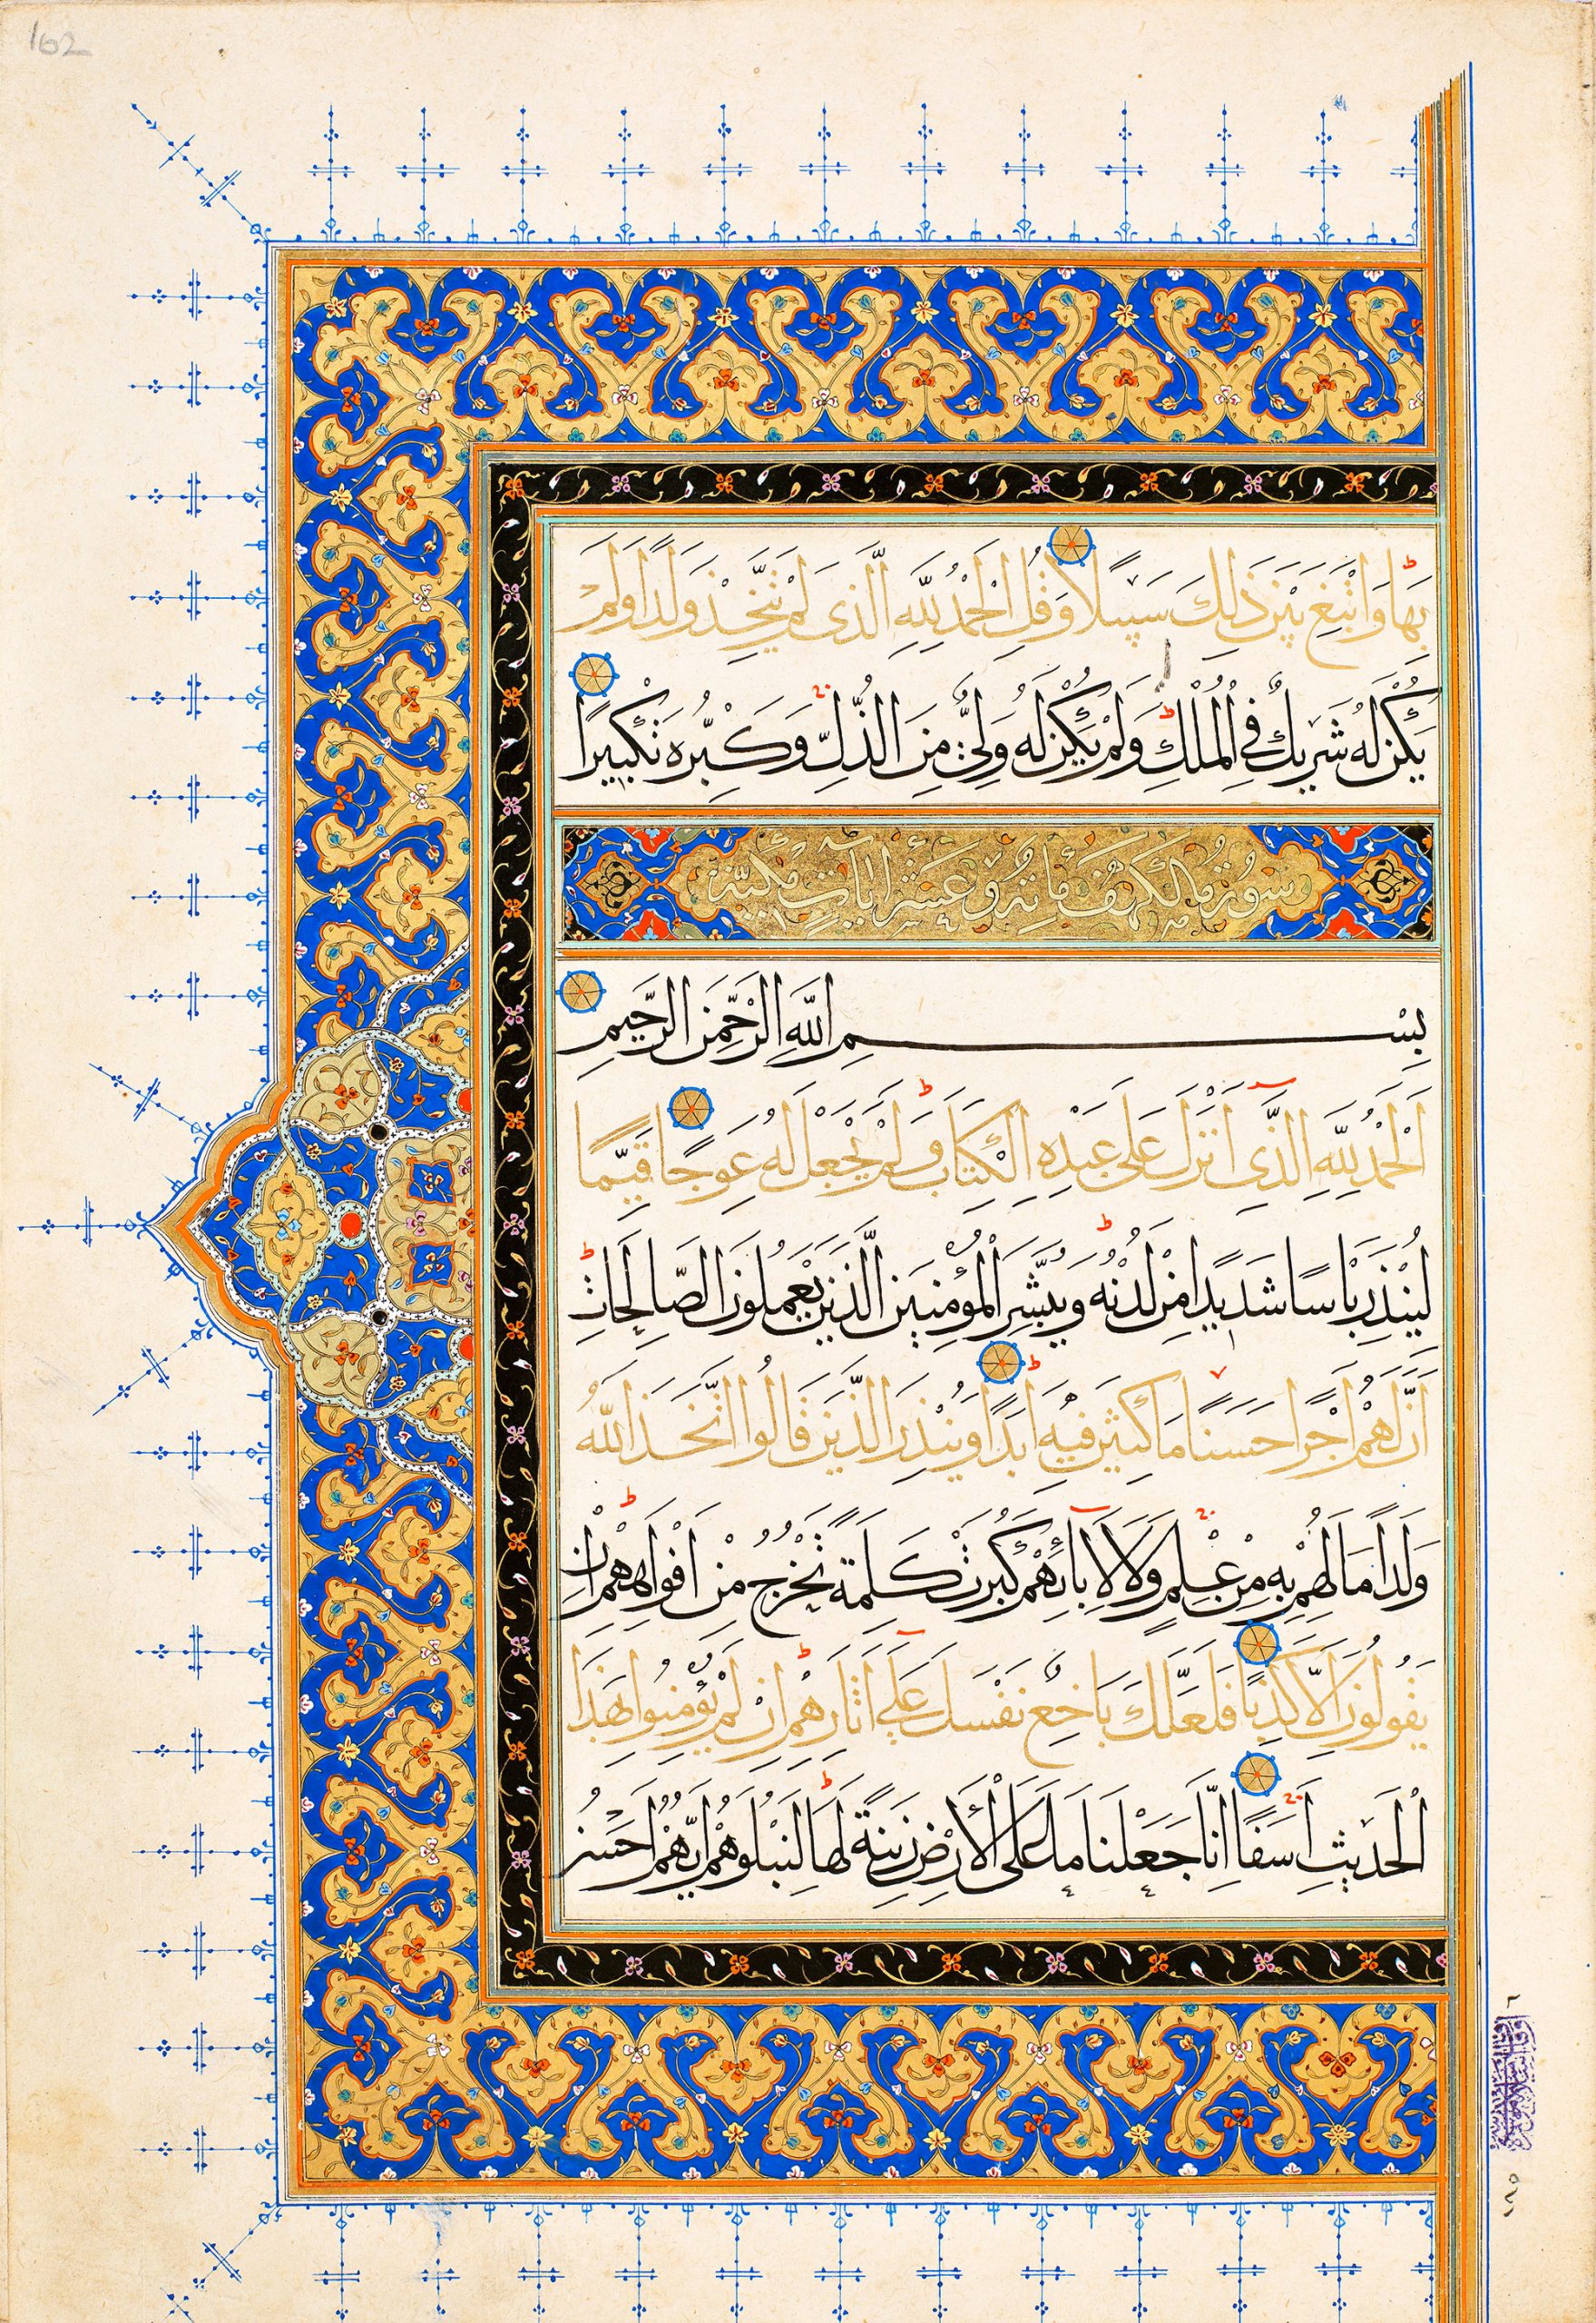 162
بِهَا وَابْتَغِ بَيْنَ ذَلِكَ سَبِيلًا وَقُلِ الْحَمْدُ لِلَّهِ الَّذِى لَمْ يَتَّخِذْ وَلَدًا وَلَمْ
يَكُنْ لَهُ شَرِيكٌ فِي الْمُلْكِ وَلَمْ يَكُنْ لَهُ وَلِيٌّ مِنَ الذُّلِّ وَكَبِّرْهُ تَكْبِيرًا
سُورَةُ الْكَهْفِ مِائَةٌ وَعَشْرُ آيَاتٍ مَكِّيَّة
بِسْمِ اللَّهِ الرَّحْمَنِ الرَّحِيمِ
اَلْحَمْدُ لِلَّهِ الَّذِى اَنْزَلَ عَلَى عَبْدِهِ الْكِتَابَ وَلَمْ يَجْعَلْ لَهُ عِوَجًا قَيِّمًا
لِيُنْذِرَ بَأْسًا شَدِيدًا مِنْ لَدُنْهُ وَيُبَشِّرَ الْمُؤْمِنِينَ الَّذِينَ يَعْمَلُونَ الصَّالِحَاتِ
اَنَّ لَهُمْ اَجْرًا حَسَنًا مَاكِثِينَ فِيهِ اَبَدًا وَيُنْذِرَ الَّذِينَ قَالُوا اتَّخَذَ اللَّهُ
وَلَدًا مَا لَهُمْ بِهِ مِنْ عِلْمٍ وَلَا لِاٰبَائِهِمْ كَبُرَتْ كَلِمَةً تَخْرُجُ مِنْ اَفْوَاهِهِمْ اِنْ
يَقُولُونَ اِلَّا كَذِبًا فَلَعَلَّكَ بَاخِعٌ نَفْسَكَ عَلَى اٰثَارِهِمْ اِنْ لَمْ يُؤْمِنُوا بِهَذَا
الْحَدِيثِ اَسَفًا اِنَّا جَعَلْنَا مَا عَلَى الْاَرْضِ زِينَةً لَهَا لِنَبْلُوَهُمْ اَيُّهُمْ اَحْسَنُ